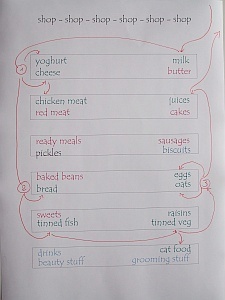 shop - shop - shop - shop - shop - shop
yoghurt milk
cheese butter
chicken meat juices
red meat cakes
ready meals sausages
pickles biscuits
baked beans eggs
bread oats
sweets raisins
tinned fish tinned veg
drinks cat food
beauty stuff grooming stuff